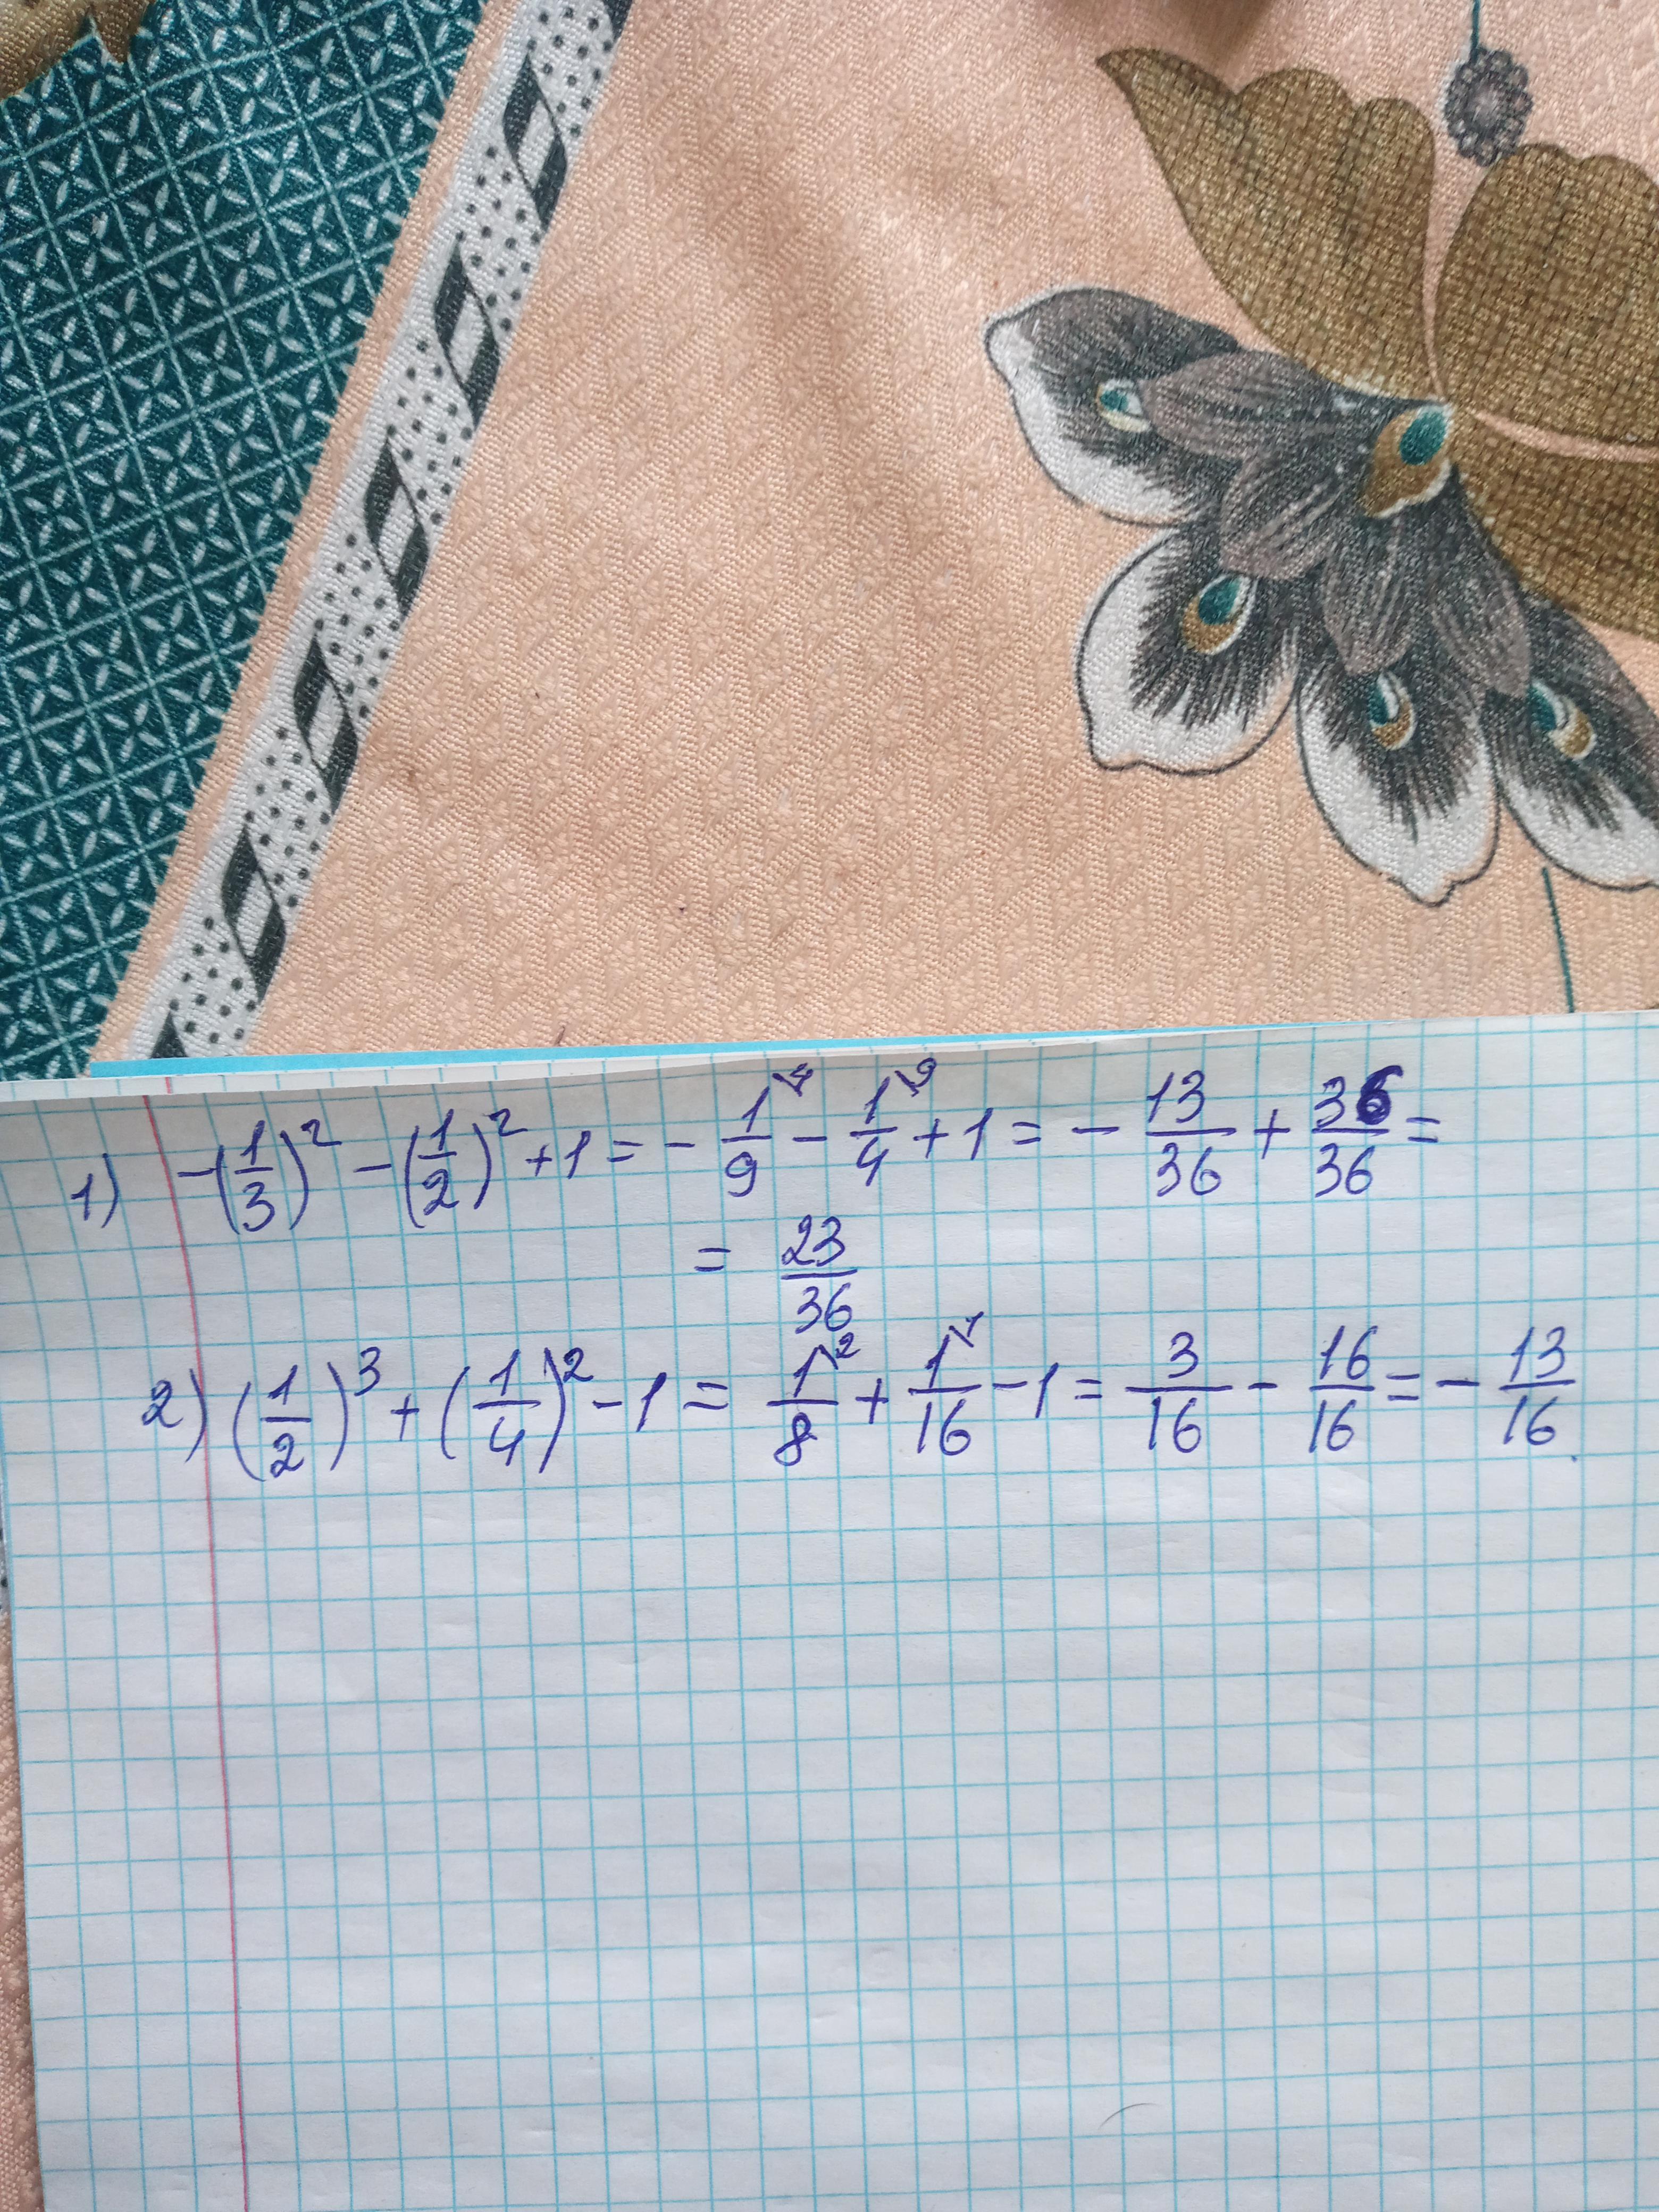 1) -(1/3)² - (1/2)² + 1 = - 1\4/9 - 1\9/4 + 1 = - 13/36 + 36/36 =
= 23/36
2) (1/2)³ + (1/4)² - 1 = 1\2/8 + 1\1/16 - 1 = 3/16 - 16/16 = - 13/16.